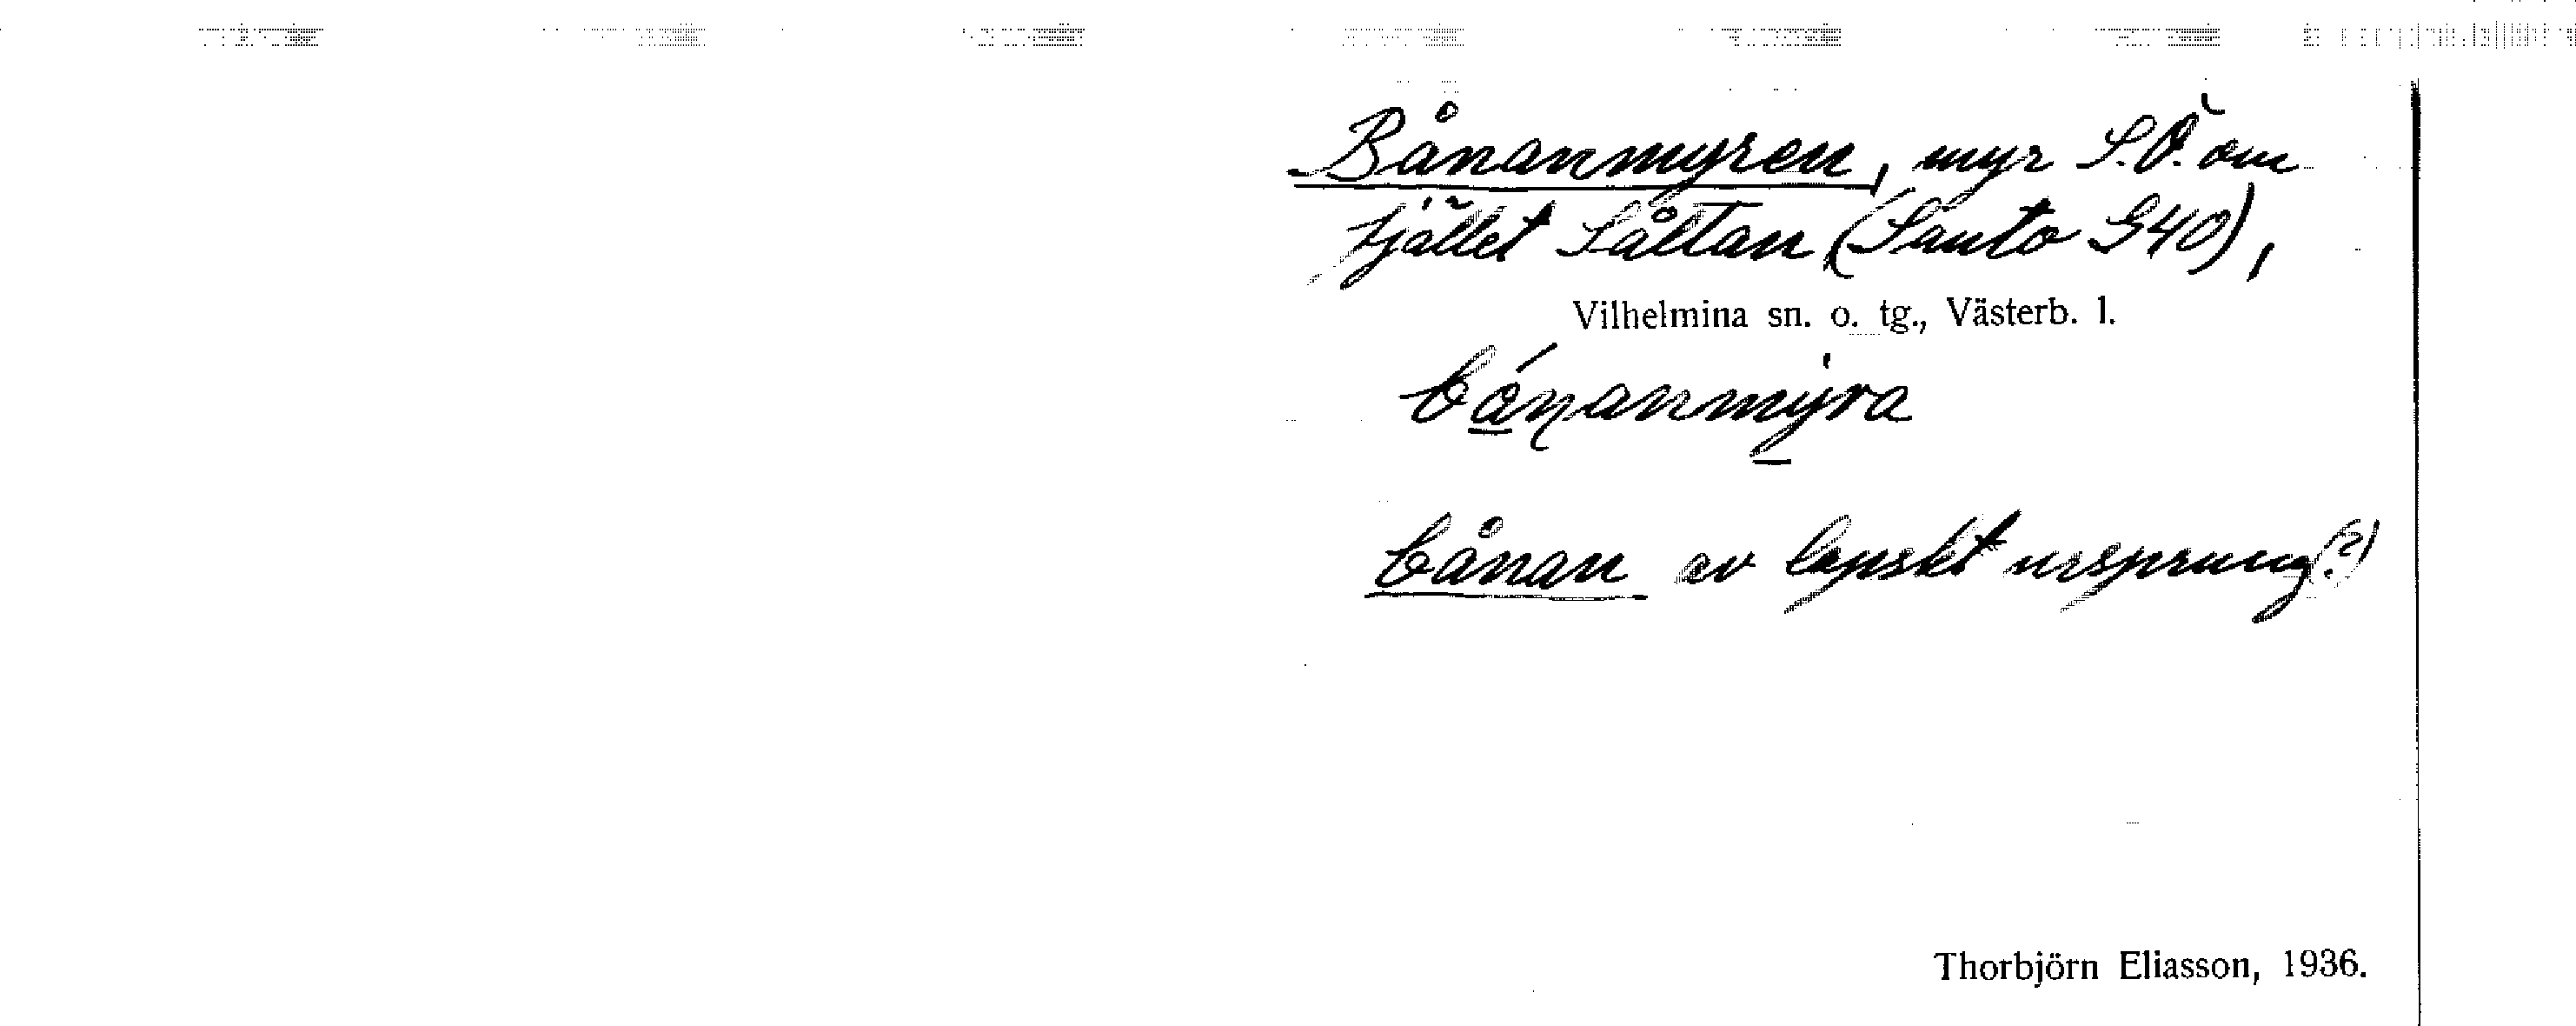 Bånanmyren, myr S.Ö. om
fjället Såltan (Santo G40),
Vilhelmina sn. o. tg., Västerb. l.
bánanmýra
bånan av lapskt ursprung(?)
Thorbjörn Eliasson, 1936.